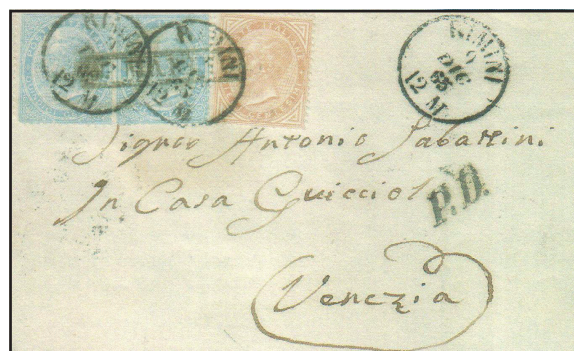 RIMINI
RIMINI
12 M
12 M
RIMINI
9
DIC
65
12 M
Signor Antonio Sabattini
In Casa Guiccioli
P.D.
Venezia